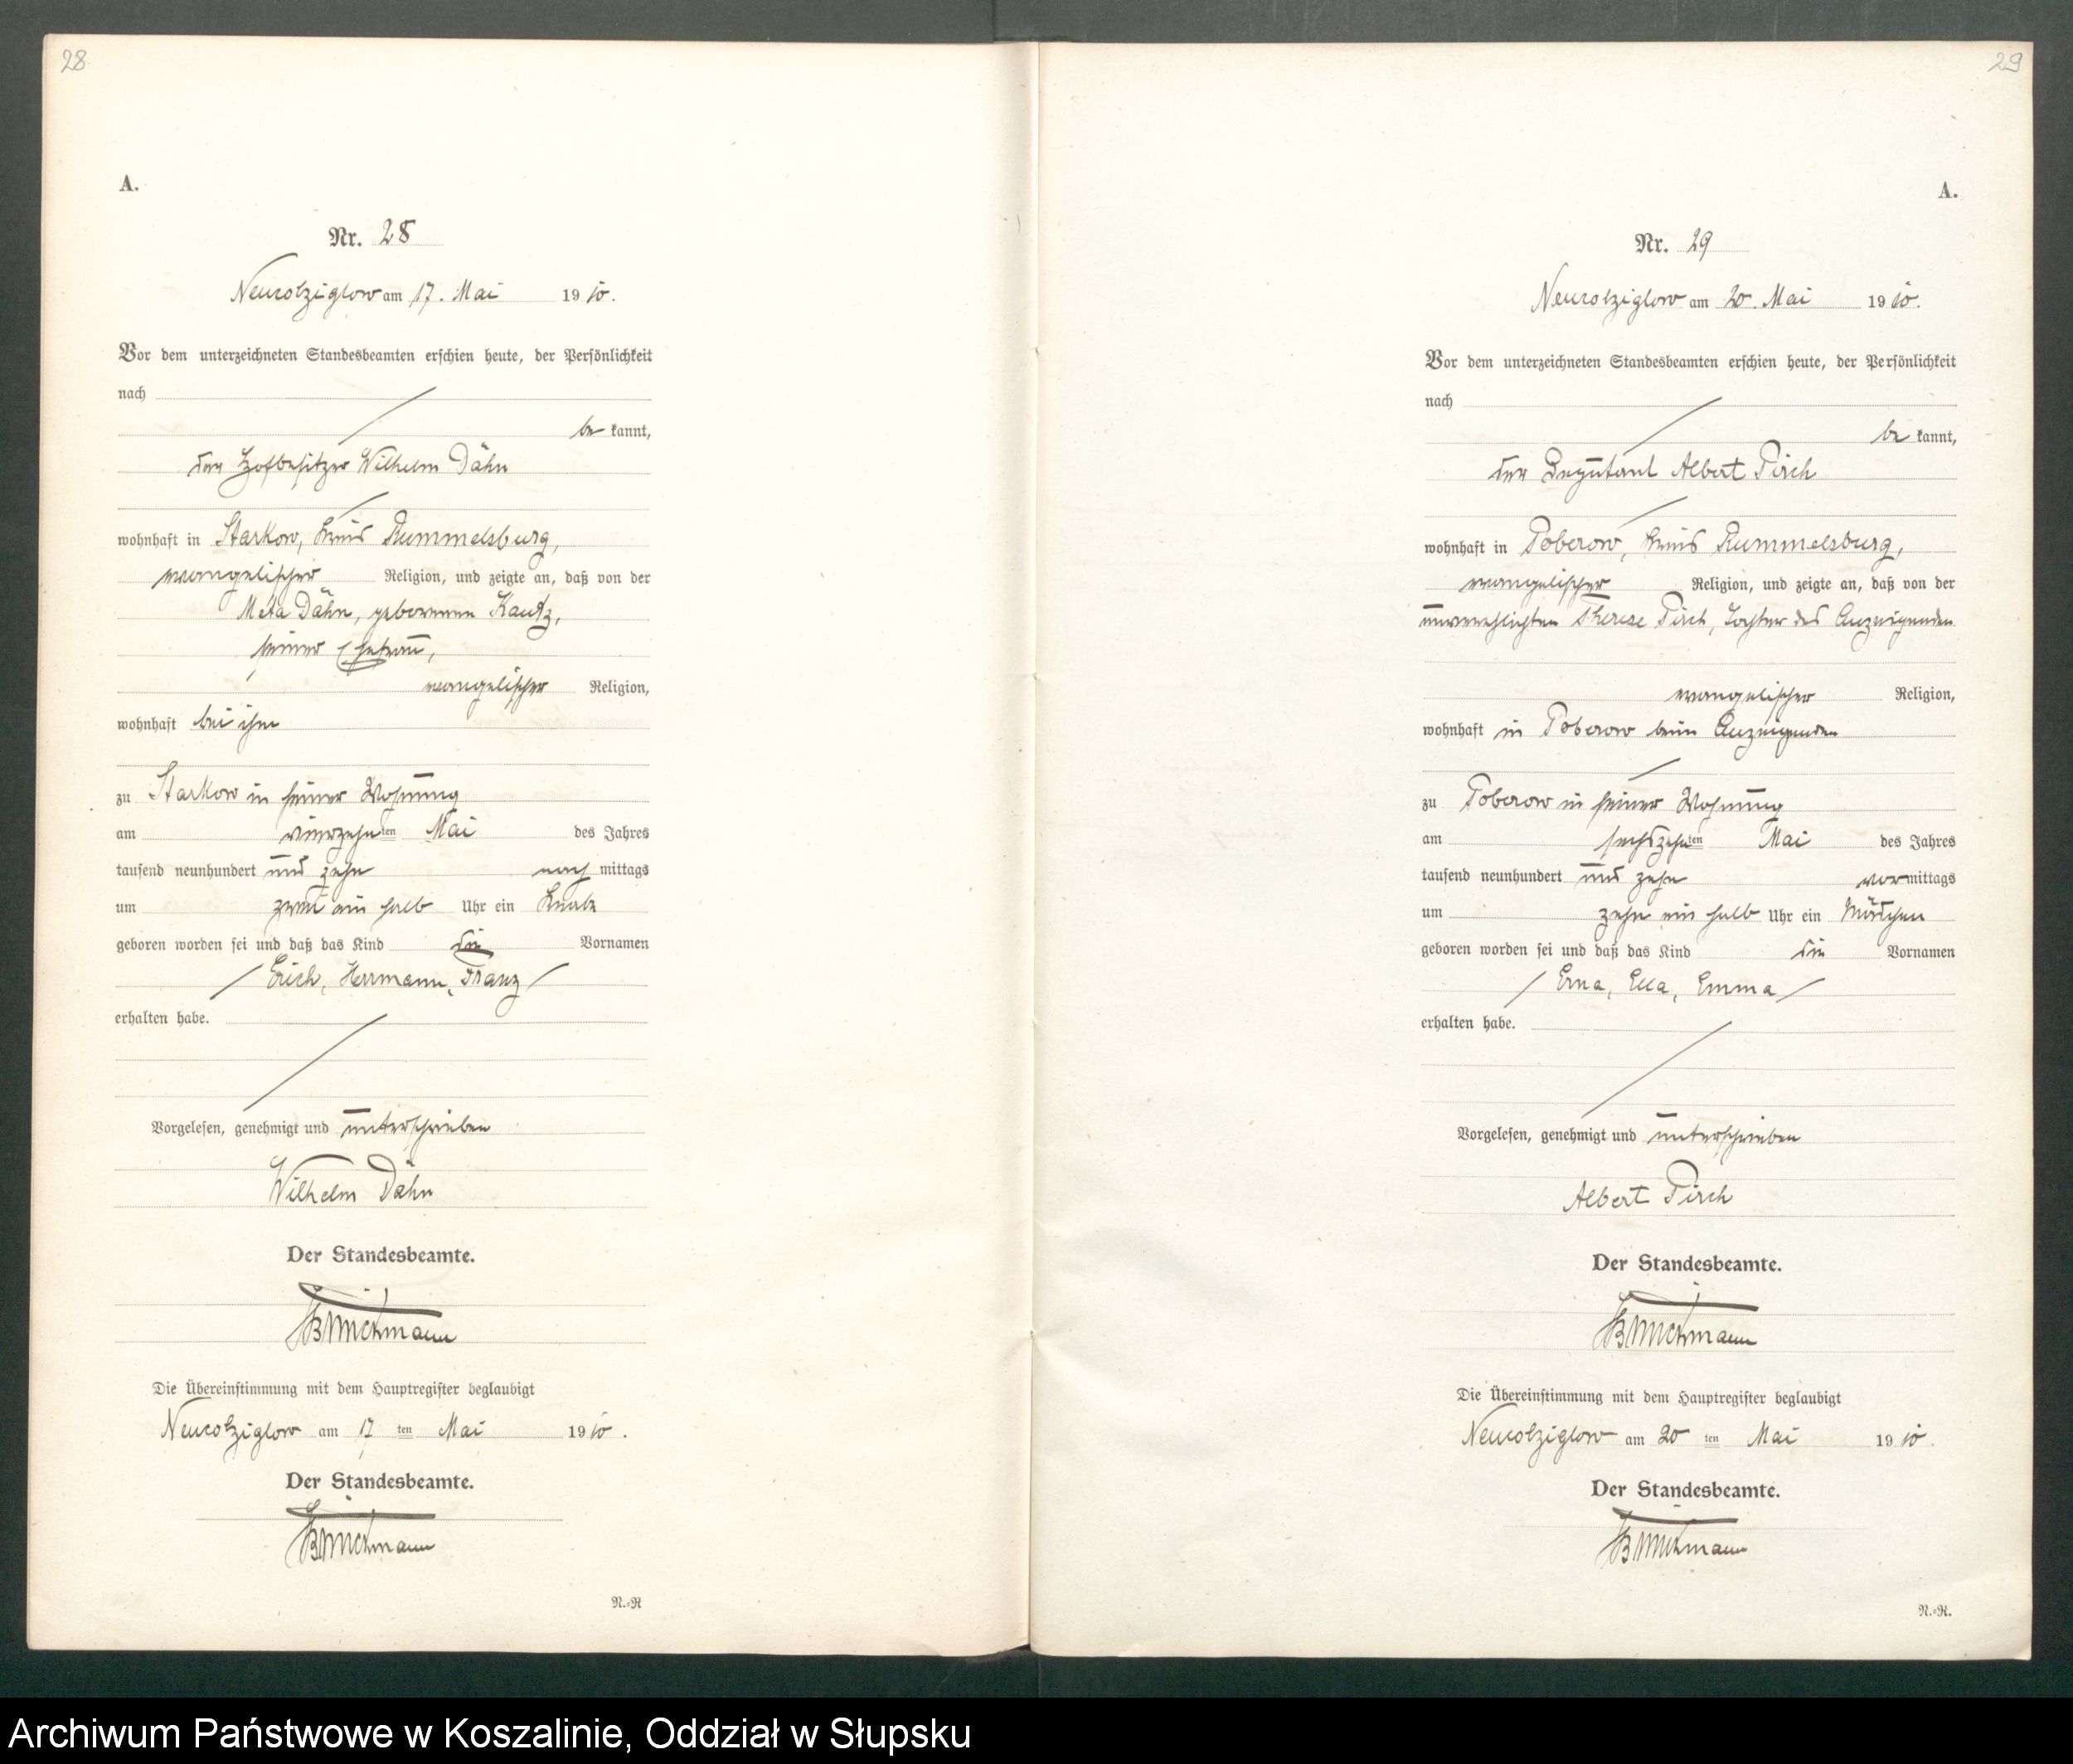 28
A.
Nr. 28
Neucolziglow am 17. Mai 1910.
Vor dem unterzeichneten Standesbeamten erschien heute, der Persönlichkeit
nach
be kannt,
der Hofbesitzer Wilhelm Dähn
wohnhaft in Starkow, Kreis Rummelsburg,
evangelischer Religion, und zeigte an, daß von der
Meta Dähn, geborenen Kautz,
seiner Ehefrau,
evangelischer Religion,
wohnhaft bei ihm
zu Starkow in seiner Wohnung
am vierzehnten Mai des Jahres
tausend neunhundert und zehn nachmittags
um zwei ein halb Uhr ein Knabe
geboren worden sei und daß das Kind die Vornamen
Erich, Herrmann, Franz
erhalten habe.
Vorgelesen, genehmigt und unterschrieben
Wilhelm Dähn
Der Standesbeamte.
Die Übereinstimmung mit dem Hauptregister beglaubigt
Neucolziglow am 17 ten Mai 1910.
Der Standesbeamte.
N.=R
29
A.
Nr. 29
Neucolziglow am 20. Mai 1910.
Vor dem unterzeichneten Standesbeamten erschien heute, der Persönlichkeit
nach
be kannt,
der Deputant Albert Pirch
wohnhaft in Poberow, Kreis Rummelsburg,
evangelischer Religion, und zeigte an, daß von der
unverehlichten Therese Pirch, Tochter des Anzeigenden
evangelischer Religion,
wohnhaft in Poberow beim Anzeigenden
zu Poberow in seiner Wohnung
am sechszehnten Mai des Jahres
tausend neunhundert und zehn vormittags
um zehn ein halb Uhr ein Mädchen
geboren worden sei und daß das Kind die Vornamen
Erna, Ella, Emma
erhalten habe.
Vorgelesen, genehmigt und unterschrieben
Albert Pirch
Der Standesbeamte.
Die Übereinstimmung mit dem Hauptregister beglaubigt
Neucolziglow am 20 ten Mai 1910.
Der Standesbeamte.
N.=R.
Archiwum Państwowe w Koszalinie, Oddział w Słupsku